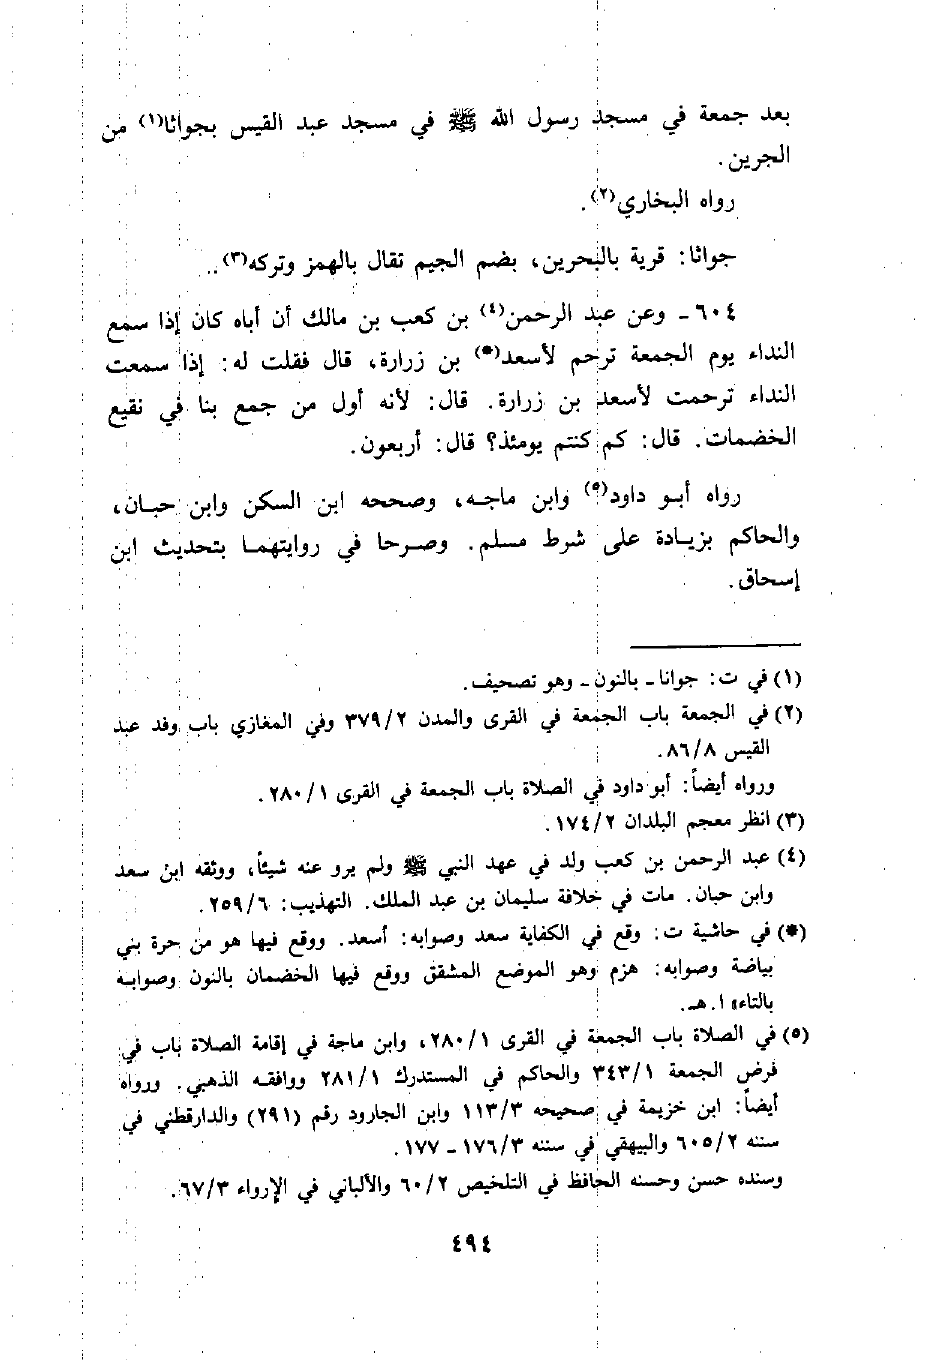 بعد جمعة في مسجد رسول الله ﷺ في مسجد عبد القيس بجواثا(١) من
الجرين.
رواه البخاري(٢).
جواثا: قرية بالبحرين، بضم الجيم تقال بالهمز وتركه(٣)..
٦٠٤ - وعن عبد الرحمن(٤) بن كعب بن مالك أن أباه كان إذا سمع
النداء يوم الجمعة ترحم لأسعد(*) بن زرارة، قال فقلت له: إذا سمعت
النداء ترحمت لأسعد بن زرارة. قال: لأنه أول من جمع بنا في نقيع
الخضمات. قال: كم كنتم يومئذ؟ قال: أربعون.
رواه أبو داود(٥) وابن ماجه، وصححه ابن السكن وابن حبان،
والحاكم بزيادة على شرط مسلم. وصرحا في روايتهما بتحديث ابن
إسحاق.
(١) في ت: جوانا - بالنون - وهو تصحيف.
(٢) في الجمعة باب الجمعة في القرى والمدن ٣٧٩/٢ وفي المغازي باب وفد عبد
القيس ٨٦/٨.
ورواه أيضاً: أبو داود في الصلاة باب الجمعة في القرى ٢٨٠/١.
(٣) انظر معجم البلدان ١٧٤/٢.
(٤) عبد الرحمن بن كعب ولد في عهد النبي ﷺ ولم يرو عنه شيئاً، ووثقه ابن سعد
وابن حبان. مات في خلافة سليمان بن عبد الملك. التهذيب: ٢٥٩/٦.
(*) في حاشية ت: وقع في الكفاية سعد وصوابه: أسعد. ووقع فيها هو من حرة بني
بياضة وصوابه: هزم وهو الموضع المشقق ووقع فيها الخضمان بالنون وصوابه
بالتاء» ا.هـ.
(٥) في الصلاة باب الجمعة في القرى ٢٨٠/١، وابن ماجة في إقامة الصلاة باب في
فرض الجمعة ٣٤٣/١ والحاكم في المستدرك ٢٨١/١ ووافقه الذهبي. ورواه
أيضاً: ابن خزيمة في صحيحه ١١٣/٣ وابن الجارود رقم (٢٩١) والدارقطني في
سننه ٦٠٥/٢ والبيهقي في سننه ١٧٦/٣ - ١٧٧.
وسنده حسن وحسنه الحافظ في التلخيص ٦٠/٢ والألباني في الإرواء ٦٧/٣.
٤٩٤